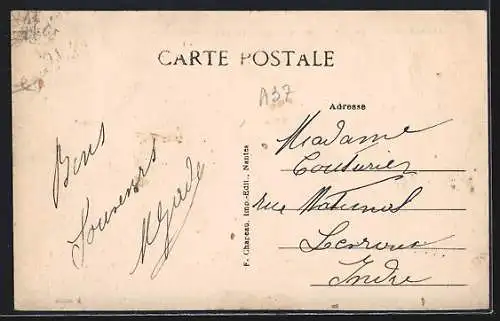 CARTE POSTALE
A37
Adresse
Bons
Souvenirs
F. Chapeau, Imp.-Edit., Nantes
Madame
Couturier
rue National
Levroux
Indre